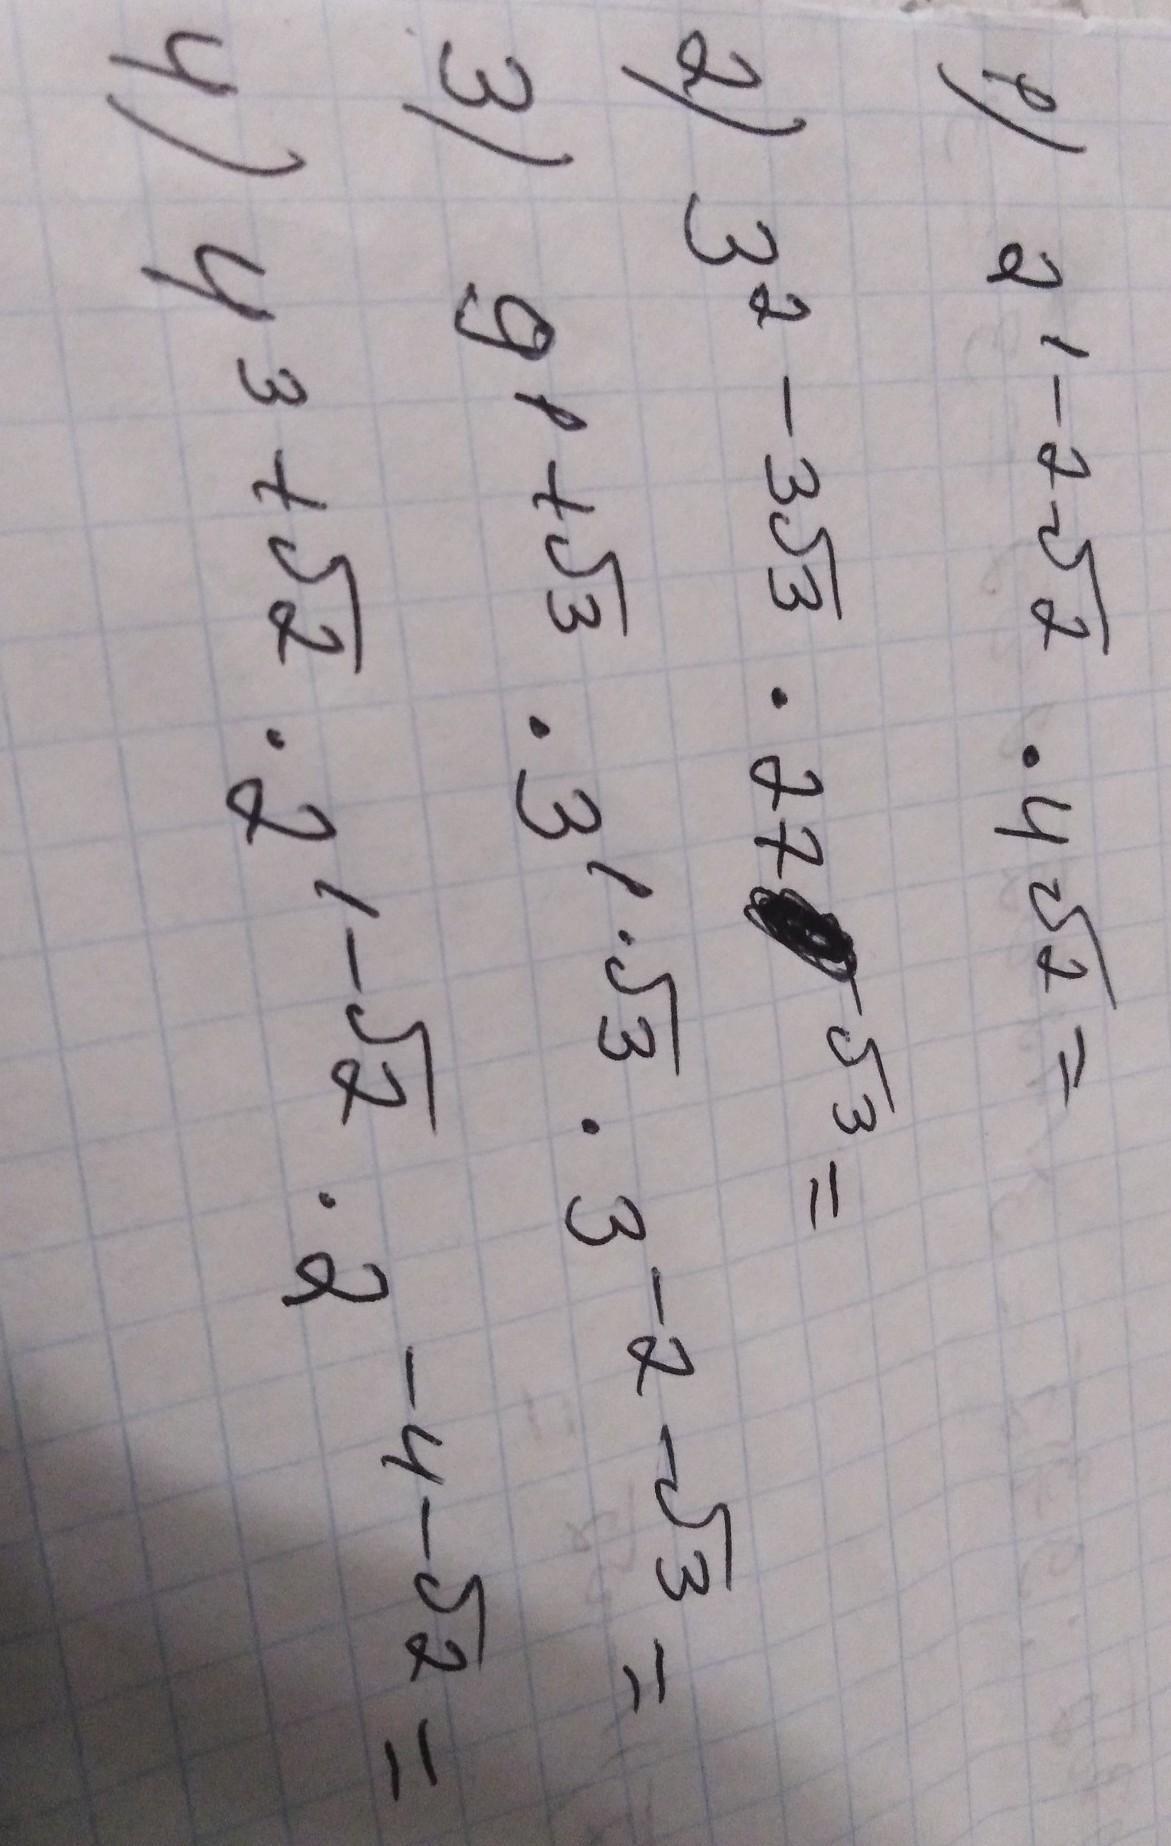 1) 2^{1-2√2} · 4^{√2} =
2) 3^{2-3√3} · 27^{√3} =
3) 9^{1+√3} · 3^{1·√3} · 3^{-2-√3} =
4) 4^{3+√2} · 2^{1-√2} · 2^{-4-√2} =